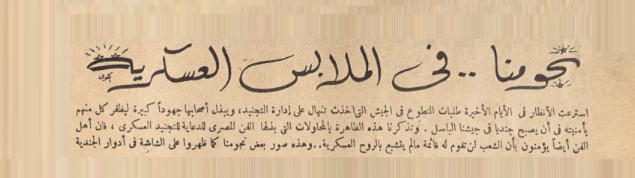 نجومنا .. فى الملابس العسكرية
استرعت الأنظار فى الأيام الأخيرة طلبات التطوع فى الجيش التى أخذت تنهال على إدارة التجنيد، ويبذل أصحابها جهوداً كبيرة ليظفر كل منهم
بأمنيته فى أن يصبح جندياً فى جيشنا الباسل . وتذكرنا هذه الظاهرة بالمحاولات التى بذلها الفن المصرى للدعاية للتجنيد العسكرى ، فان أهل
الفن أيضاً يؤمنون بأن الشعب لن تقوم له قائمة مالم يتشبع بالروح العسكرية.. وهذه صور بعض نجومنا كما ظهروا على الشاشة فى أدوار الجندية